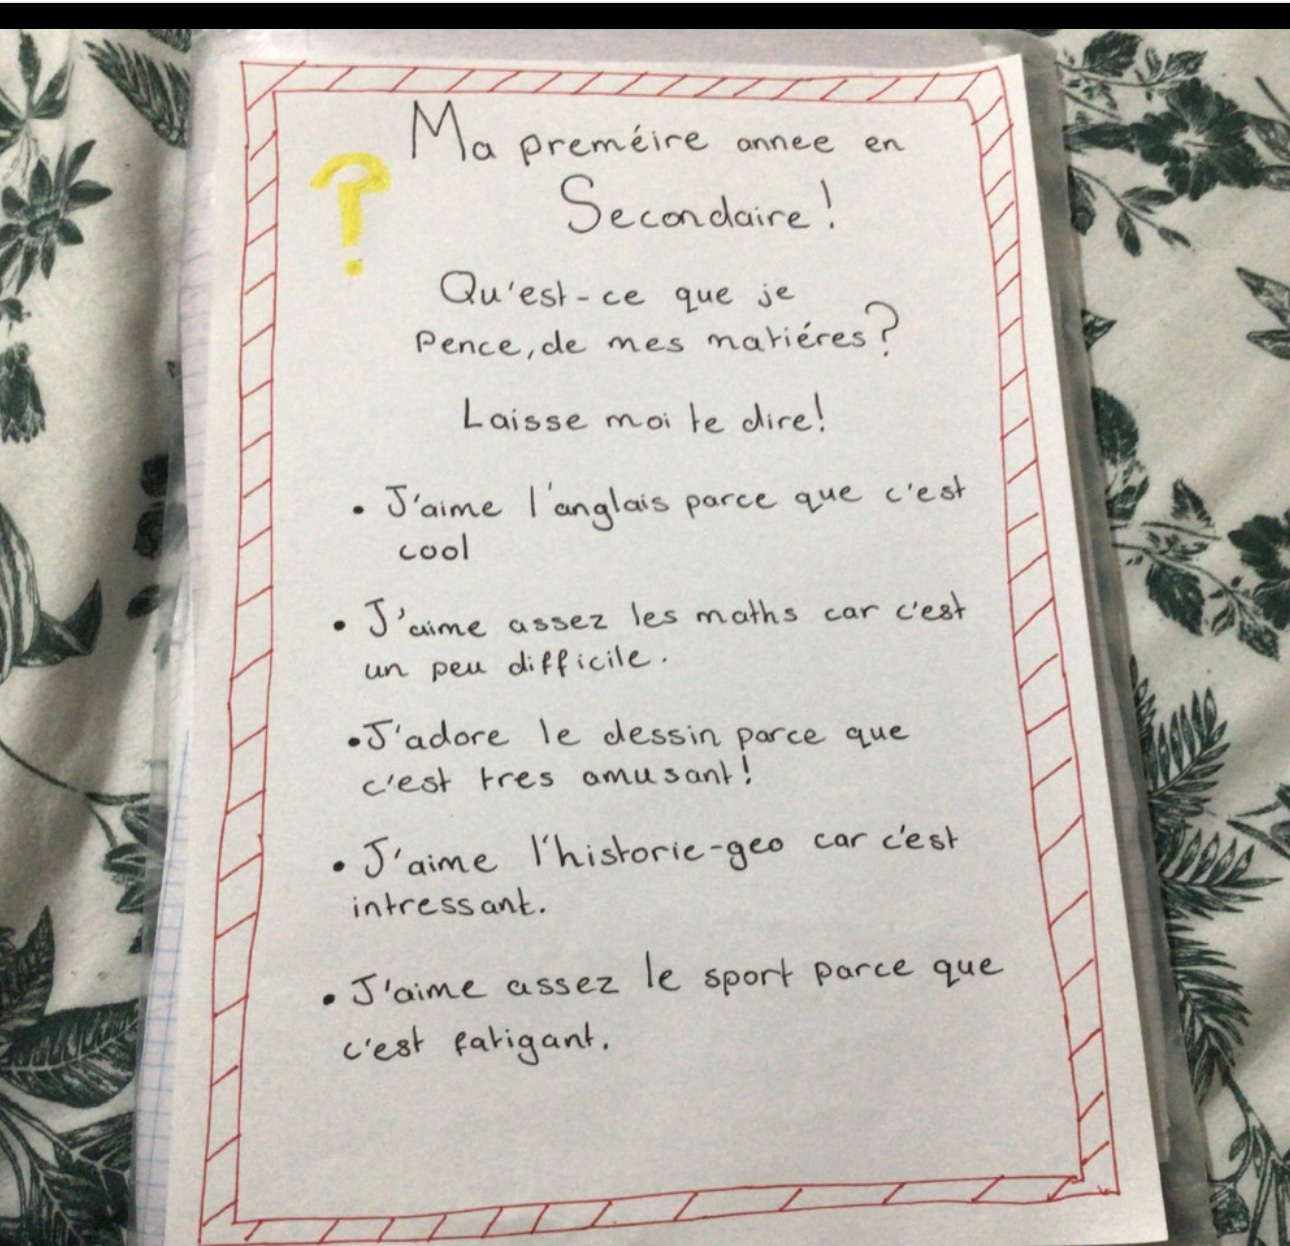 Ma preméire annee en
Secondaire!
?
Qu'est-ce que je
Pence, de mes matiéres?
Laisse moi te dire!
• J'aime l'anglais parce que c'est
cool
• J'aime assez les maths car c'est
un peu difficile.
• J'adore le dessin parce que
c'est tres amusant!
• J'aime l'historie-geo car c'est
intressant.
• J'aime assez le sport parce que
c'est fatigant.